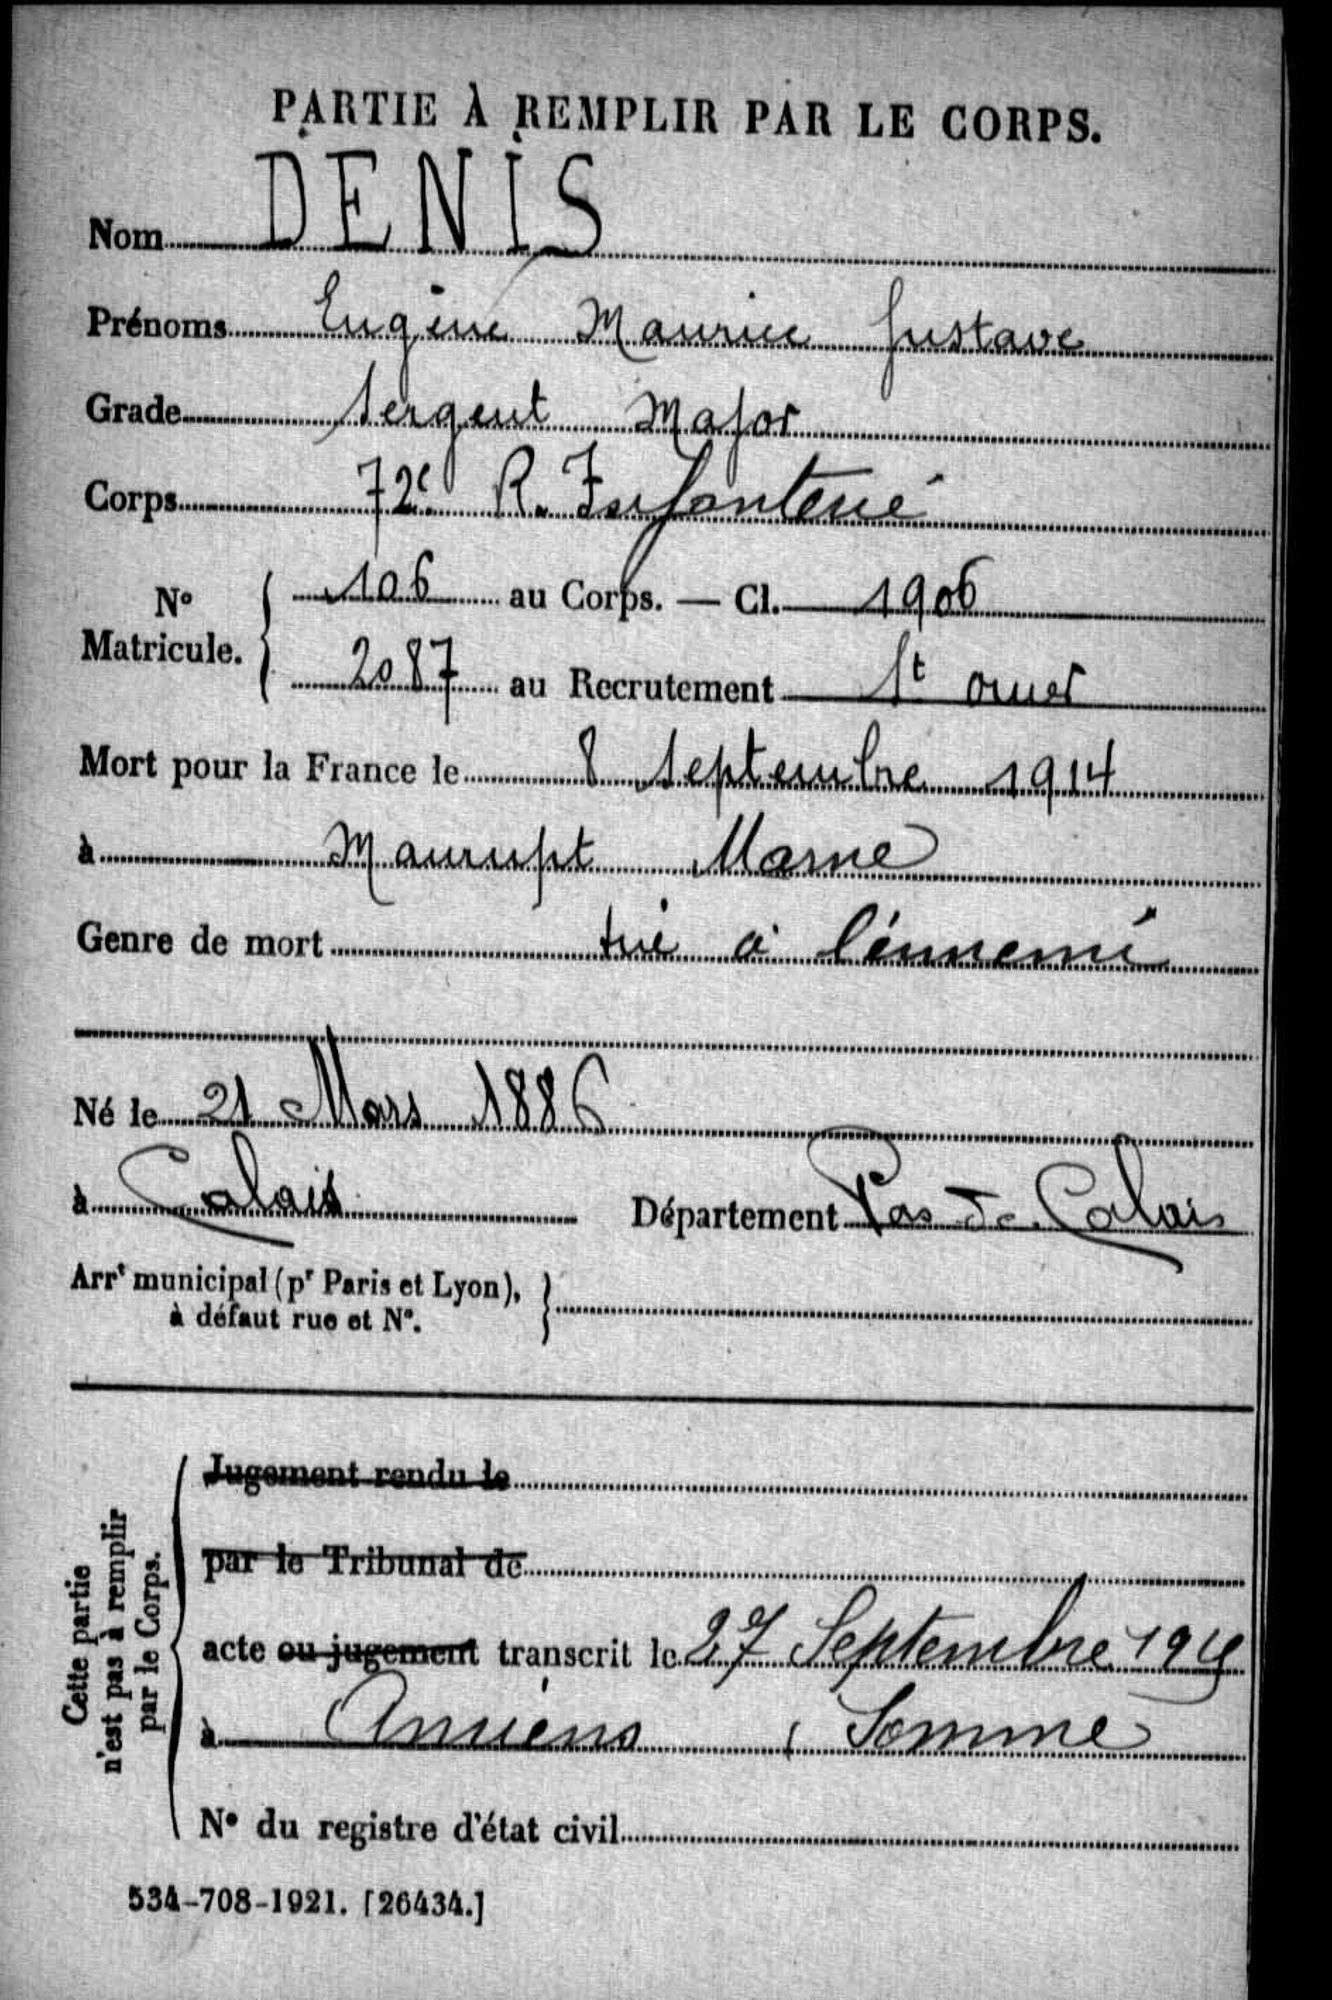 PARTIE À REMPLIR PAR LE CORPS.
Nom DENIS
Prénoms Eugène Maurice Gustave
Grade Sergent Major
Corps 72e R. Infanterie
No Matricule. { 106 au Corps. — Cl. 1906
2087 au Recrutement St omer
Mort pour la France le 8 Septembre 1914
à Maurupt Marne
Genre de mort tué à l'énnemi
Né le 21 Mars 1886
à Calais Département Pas de Calais
Arrt municipal (pr Paris et Lyon), à défaut rue et No. }
Cette partie n'est pas à remplir par le Corps. {
Jugement rendu le
par le Tribunal de
acte ou jugement transcrit le 27 Septembre
à Amiens, Somme
No du registre d'état civil
534-708-1921. [26434.]